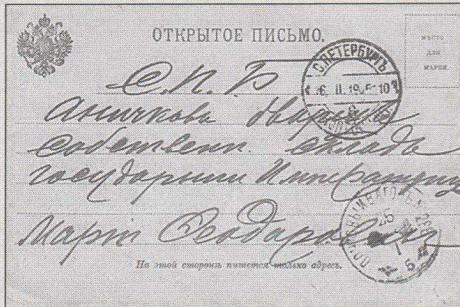 ОТКРЫТОЕ ПИСЬМО.
МѢСТО
ДЛЯ
МАРКИ.
С.ПЕТЕРБУРГЪ
С. П. Б
Аничковъ дворецъ
Собственн. складъ
Государыни Императрицы
Маріи Ѳеодоровны
На этой сторонѣ пишется только адресъ.